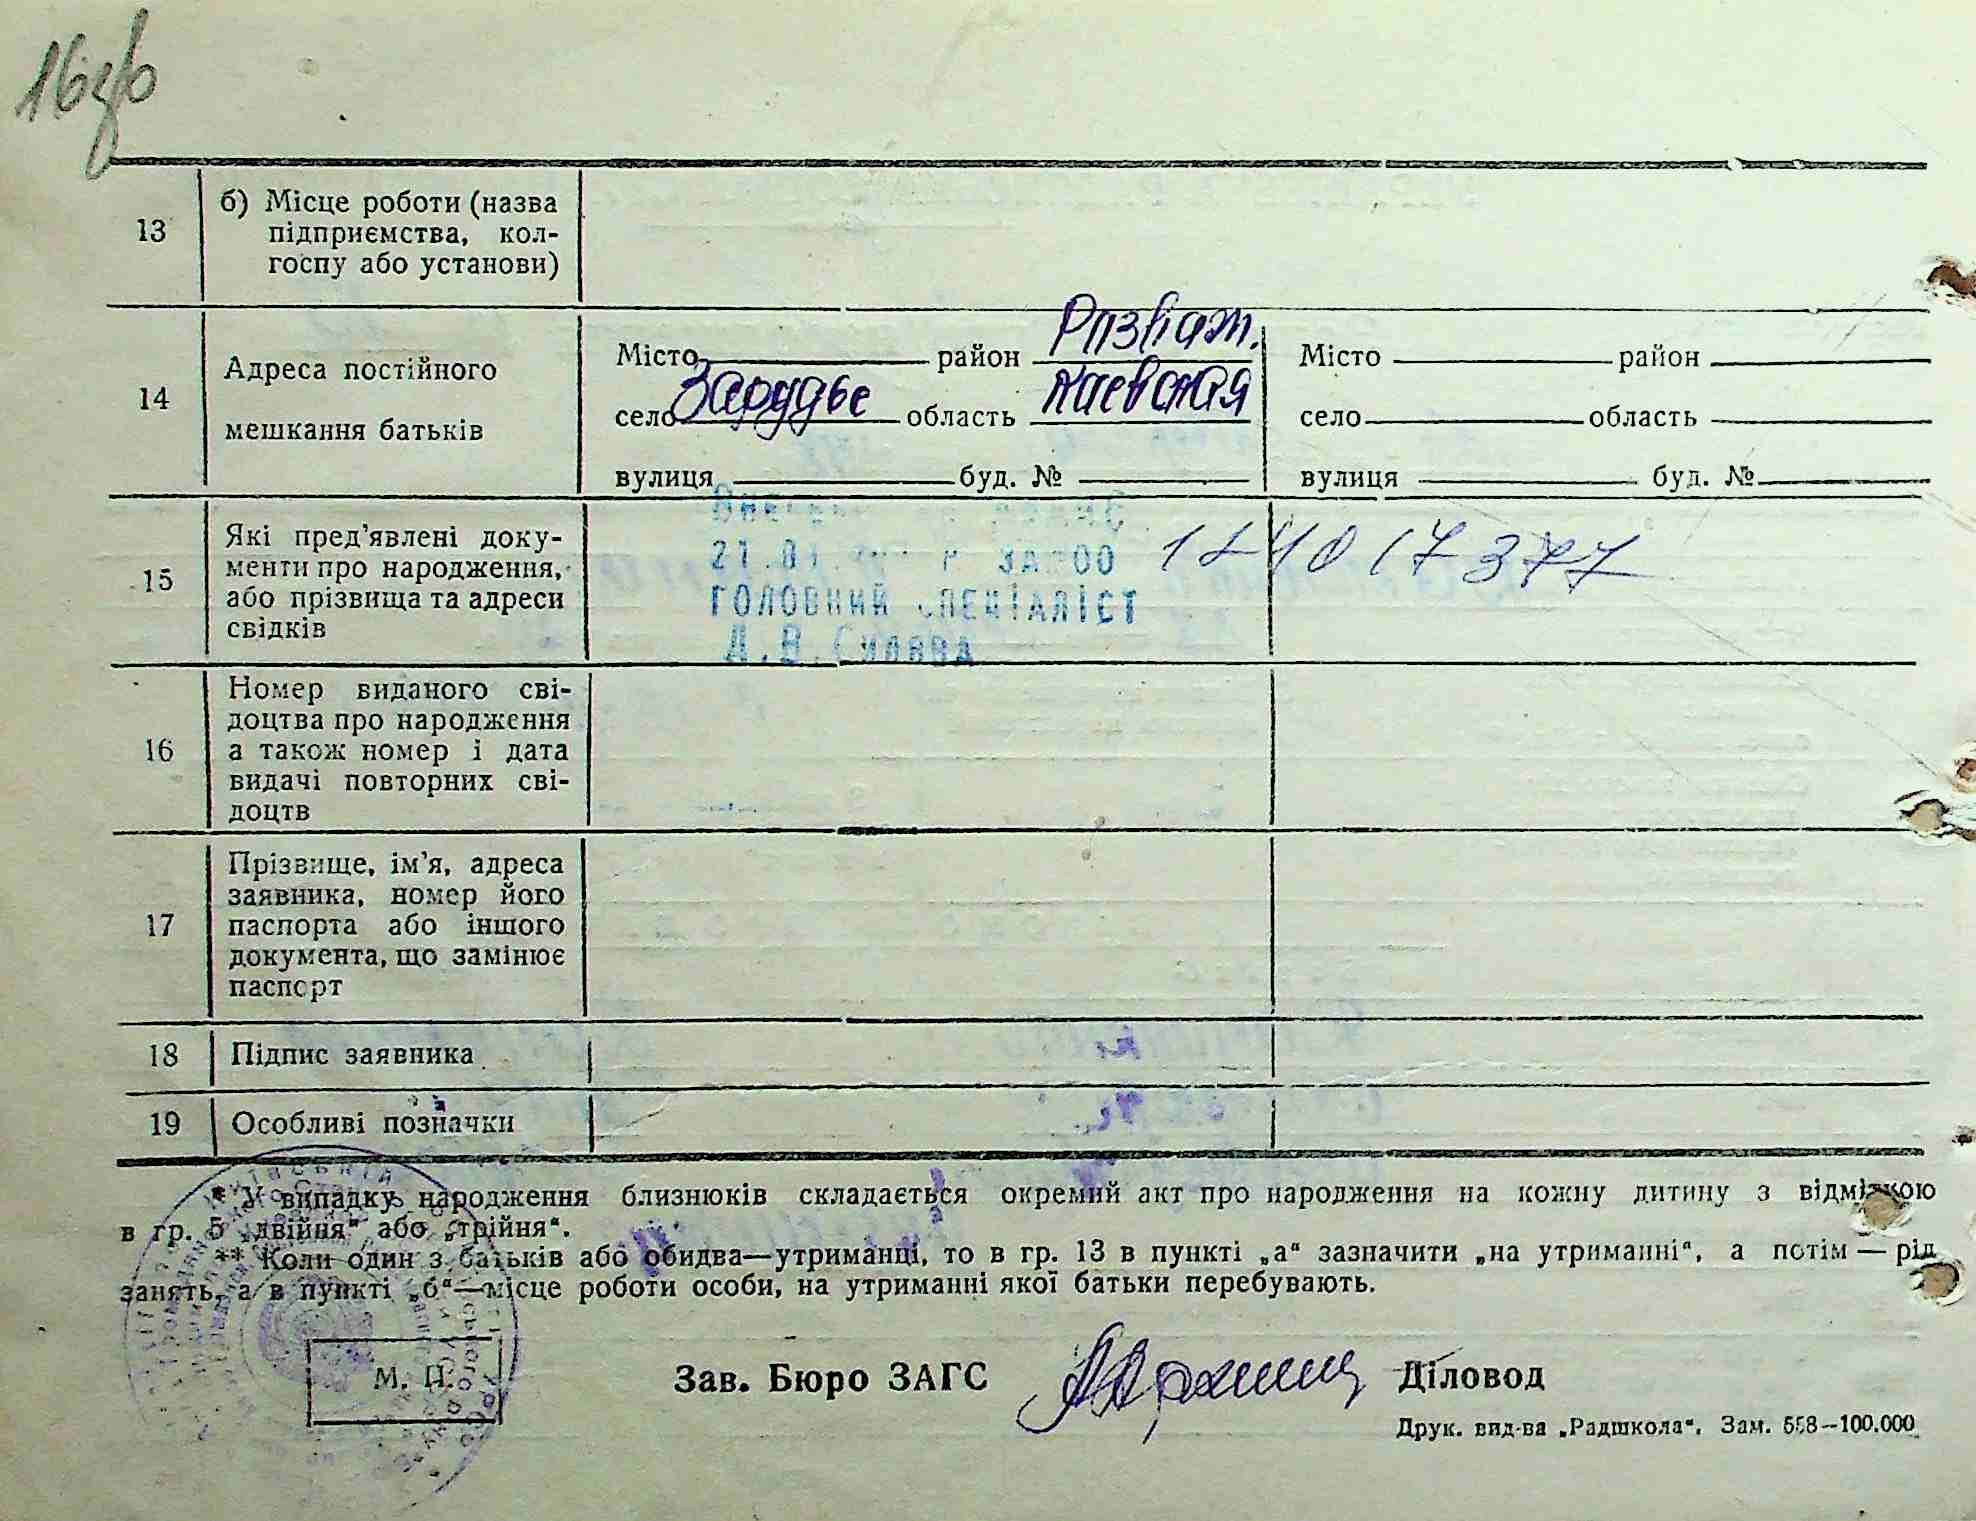 13 б) Місце роботи (назва
підприємства, кол-
госпу або установи)
14 Адреса постійного
мешкання батьків
Місто район Розваж. Місто район
село Заруддье область Киевская село область
вулиця буд. № вулиця буд. №
15 Які пред'явлені доку-
менти про народження,
або прізвища та адреси
свідків
21.01. 124017377
ГОЛОВНИЙ СПЕЦІАЛІСТ
Д.В.
16 Номер виданого сві-
доцтва про народження
а також номер і дата
видачі повторних сві-
доцтв
17 Прізвище, ім'я, адреса
заявника, номер його
паспорта або іншого
документа, що замінює
паспорт
18 Підпис заявника
19 Особливі позначки
* У випадку народження близнюків складається окремий акт про народження на кожну дитину з відміткою
в гр. 5 „двійня“ або „трійня“.
** Коли один з батьків або обидва—утриманці, то в гр. 13 в пункті „а“ зазначити „на утриманні“, а потім — рід
занять, а в пункті „б“—місце роботи особи, на утриманні якої батьки перебувають.
М. П. Зав. Бюро ЗАГС Діловод
Друк. вид-ва „Радшкола“. Зам. 658—100.000